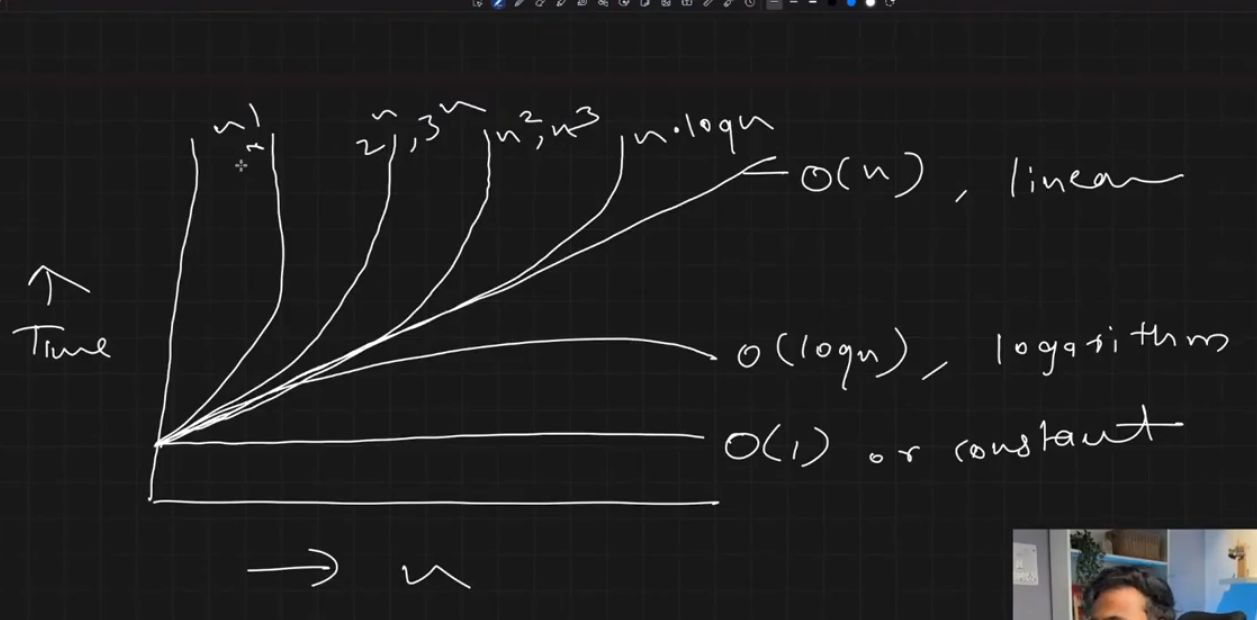 n!
2ⁿ, 3ⁿ
n², n³
n·logn
O(n), linear
↑
Time
O(logn), logarithm
O(1) or constant
→ n